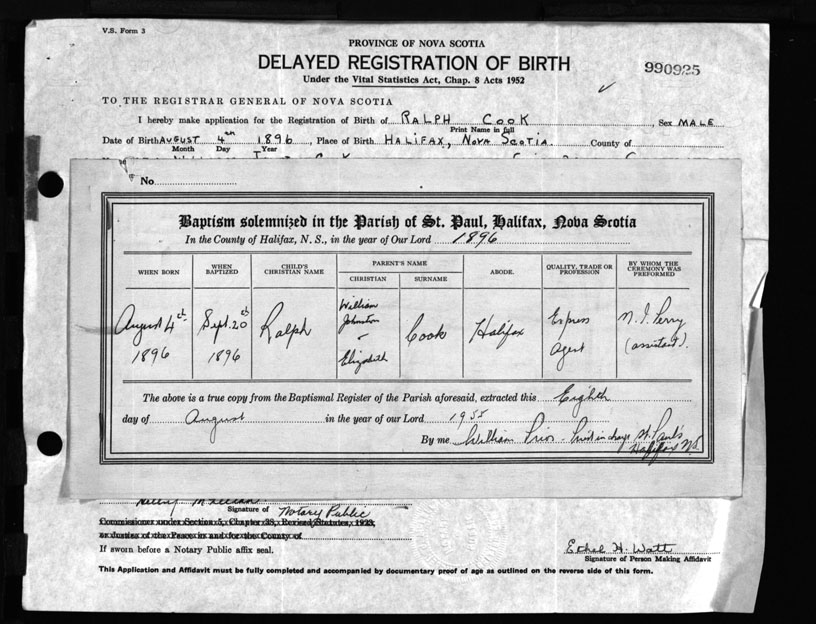 V.S. Form 3
PROVINCE OF NOVA SCOTIA
DELAYED REGISTRATION OF BIRTH
990925
Under the Vital Statistics Act, Chap. 8 Acts 1952
TO THE REGISTRAR GENERAL OF NOVA SCOTIA
I hereby make application for the Registration of Birth of RALPH COOK, Sex MALE
Print Name in full
Date of Birth AUGUST 4th 1896, Place of Birth HALIFAX, NOVA SCOTIA. County of
Month Day Year
No.
Baptism solemnized in the Parish of St. Paul, Halifax, Nova Scotia
In the County of Halifax, N. S., in the year of Our Lord 1896
WHEN BORN WHEN BAPTIZED CHILD'S CHRISTIAN NAME PARENT'S NAME CHRISTIAN SURNAME ABODE. QUALITY, TRADE OR PROFESSION BY WHOM THE CEREMONY WAS PREFORMED
August 4th 1896 Sept. 20th 1896 Ralph William Johnston Elizabeth Cook Halifax Express Agent N. I. Perry (assistant).
The above is a true copy from the Baptismal Register of the Parish aforesaid, extracted this Eighth
day of August in the year of our Lord 1955
By me William Prior - Priest in charge St. Paul's
Halifax N.S.
Signature of Notary Public
Commissioner under Section 5, Chapter 28, Revised Statutes, 1923,
or Justice of the Peace in and for the County of
If sworn before a Notary Public affix seal.
Ethel H. Watt
Signature of Person Making Affidavit
This Application and Affidavit must be fully completed and accompanied by documentary proof of age as outlined on the reverse side of this form.